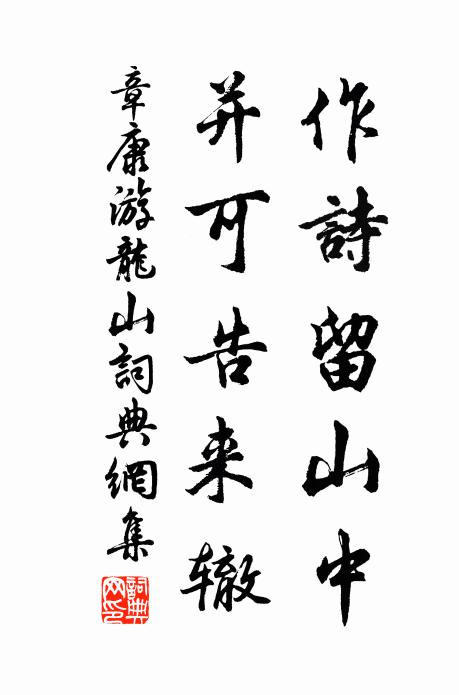 作詩留山中
并可告来辙
章康游龍山詞典網集
詞典